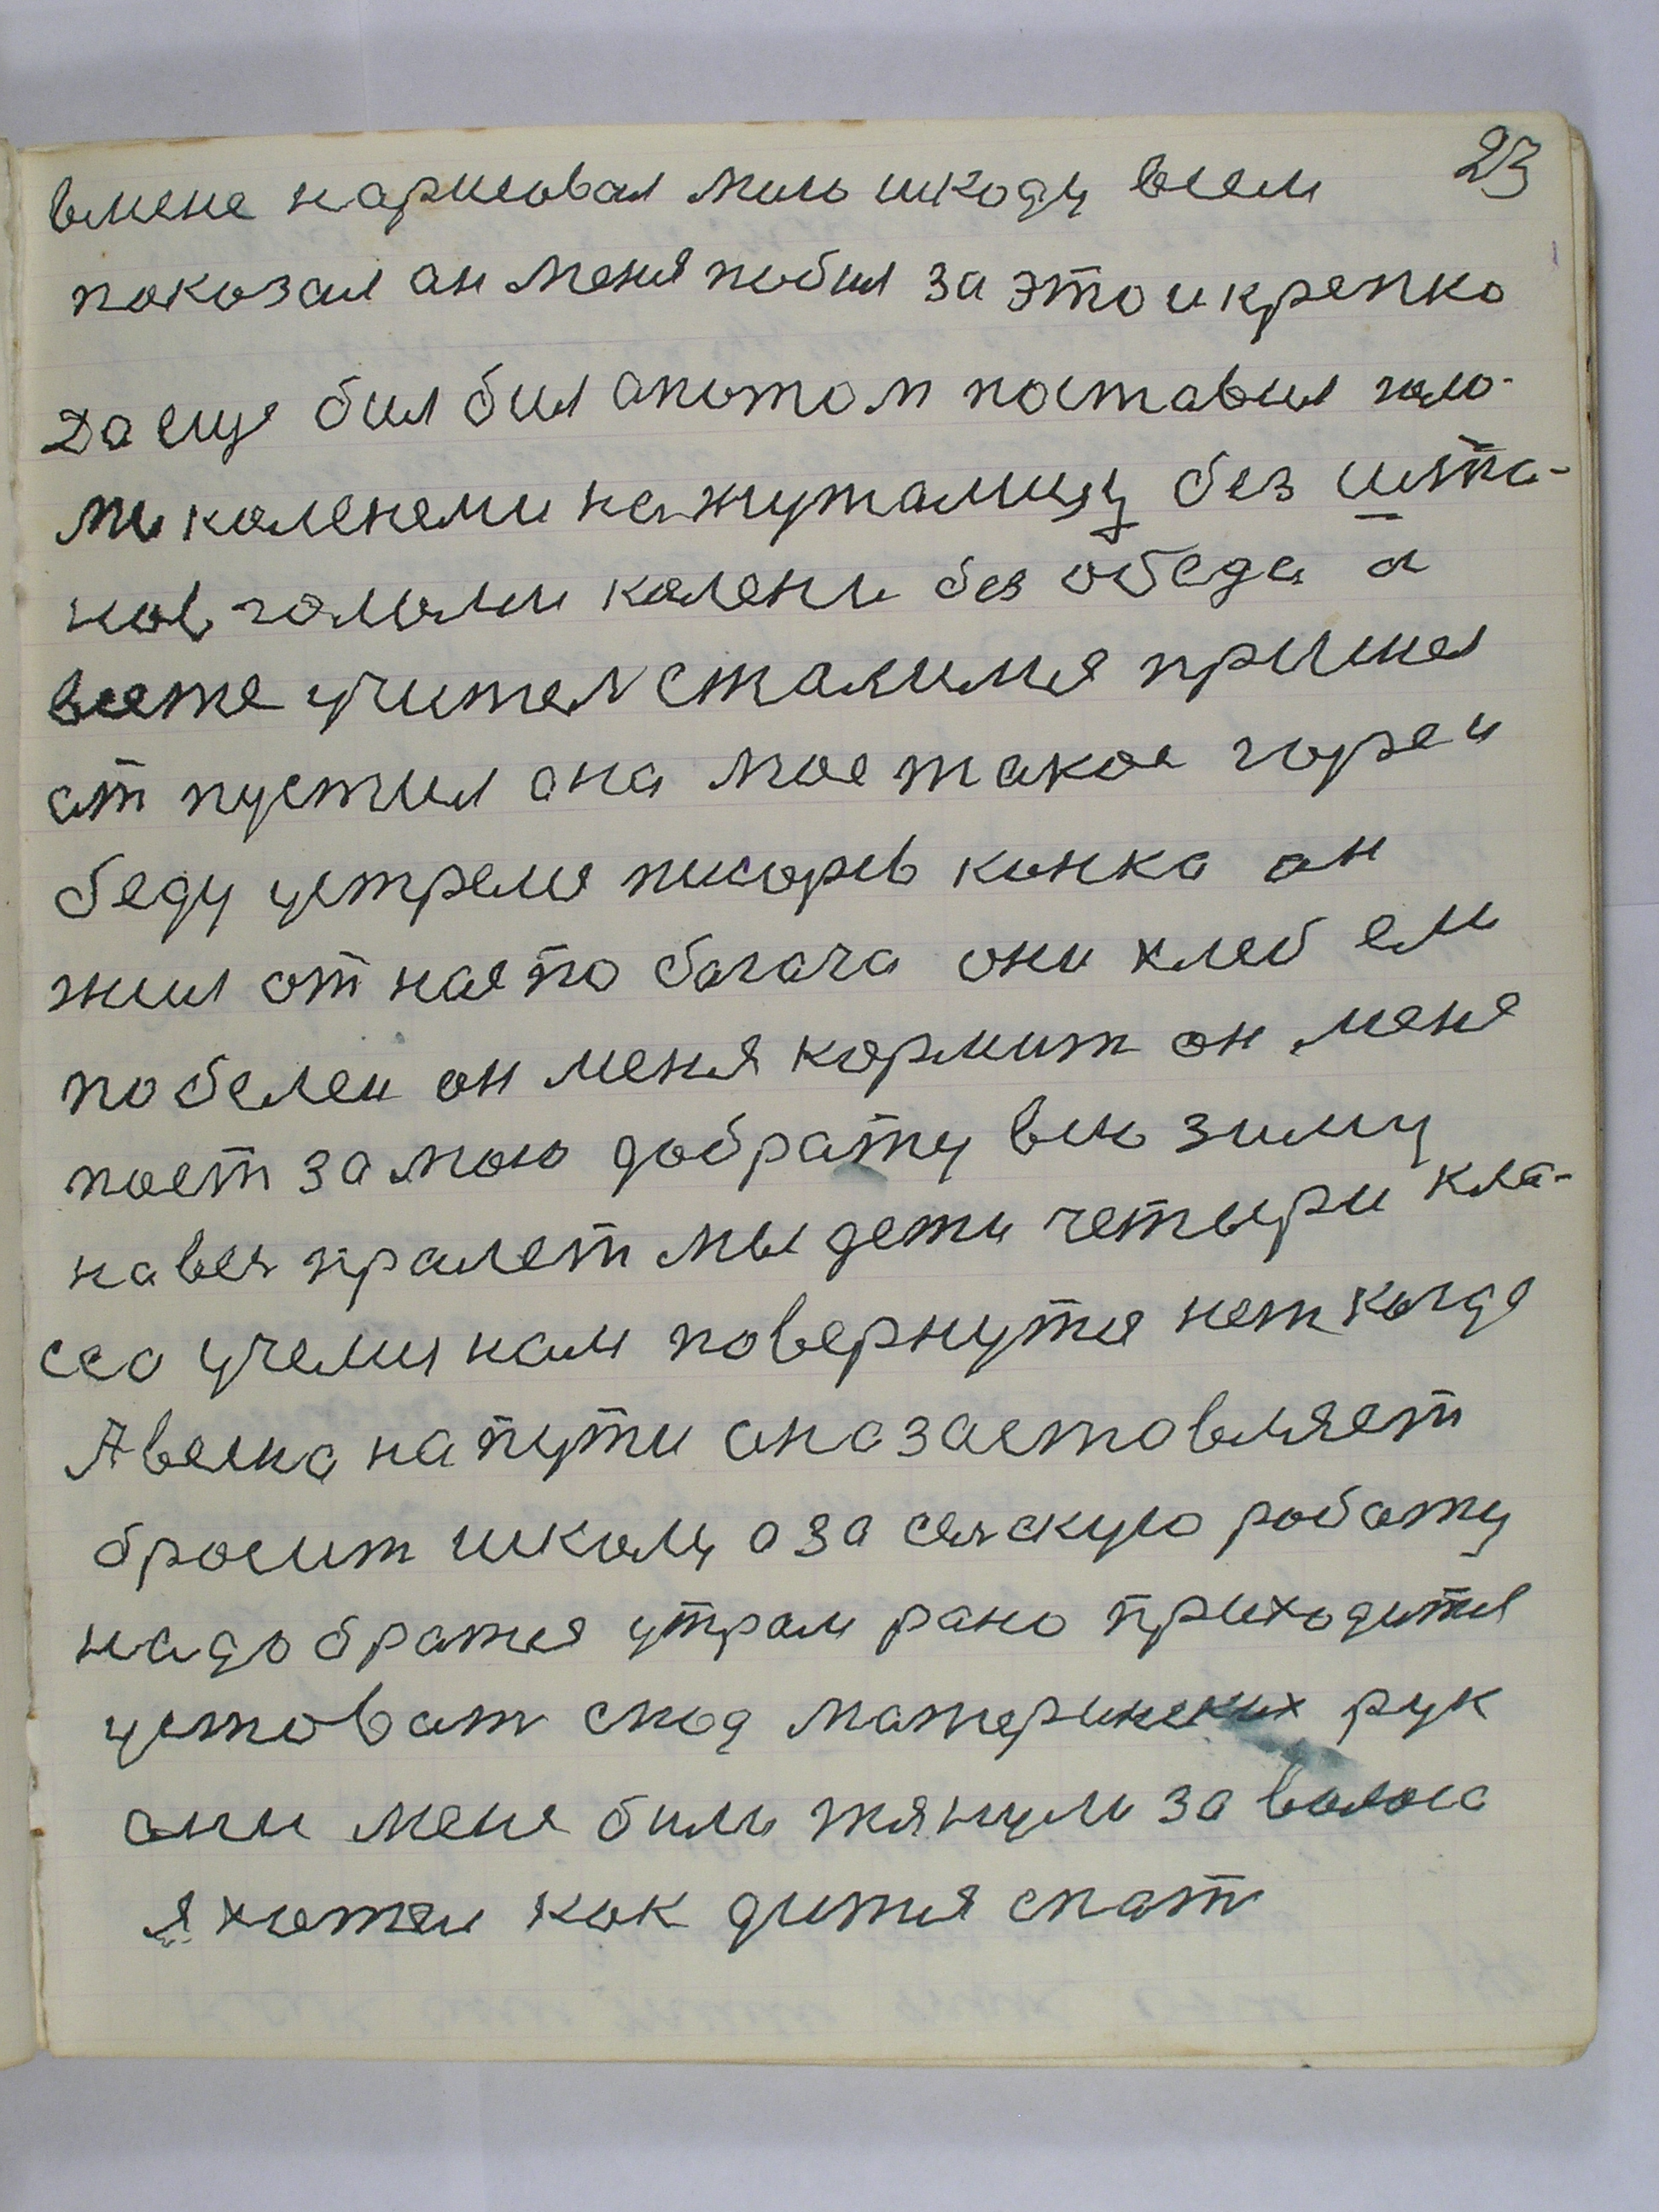 23
вмене нарисовал мою шкоду всем
показал ан меня побил за это и крепко
Да еще бил бил апотом поставил голо-
ми коленеми на жуталицу без шта-
нов голыми колени без обеда а
всеже учител сталился пришел
ат пустил она мое такое горе и
беду устреля писорев кинка он
жил от нас по багача они хлеб ели
побелеи он меня кормит он меня
поет за мою доброту всю зиму
навея пролет мы дети четыри кла-
сса училис нам повернутся нет когда
А весна на пути она заставляет
бросит школу а за сялскую работу
надо братся утром рано приходится
устават спод материнских рук
они меня били тянули за волоса
я хотел как дитя спат